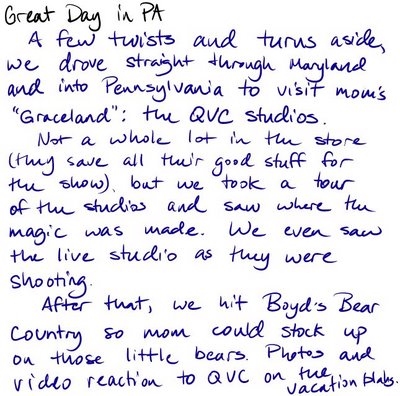 Great Day in PA
A few twists and turns aside,
we drove straight through Maryland
and into Pennsylvania to visit mom's
"Graceland": the QVC studios.
Not a whole lot in the store
(they save all their good stuff for
the show), but we took a tour
of the studios and saw where the
magic was made. We even saw
the live studio as they were
shooting.
After that, we hit Boyd's Bear
Country so mom could stock up
on those little bears. Photos and
video reaction to QVC on the
vacation blabs.